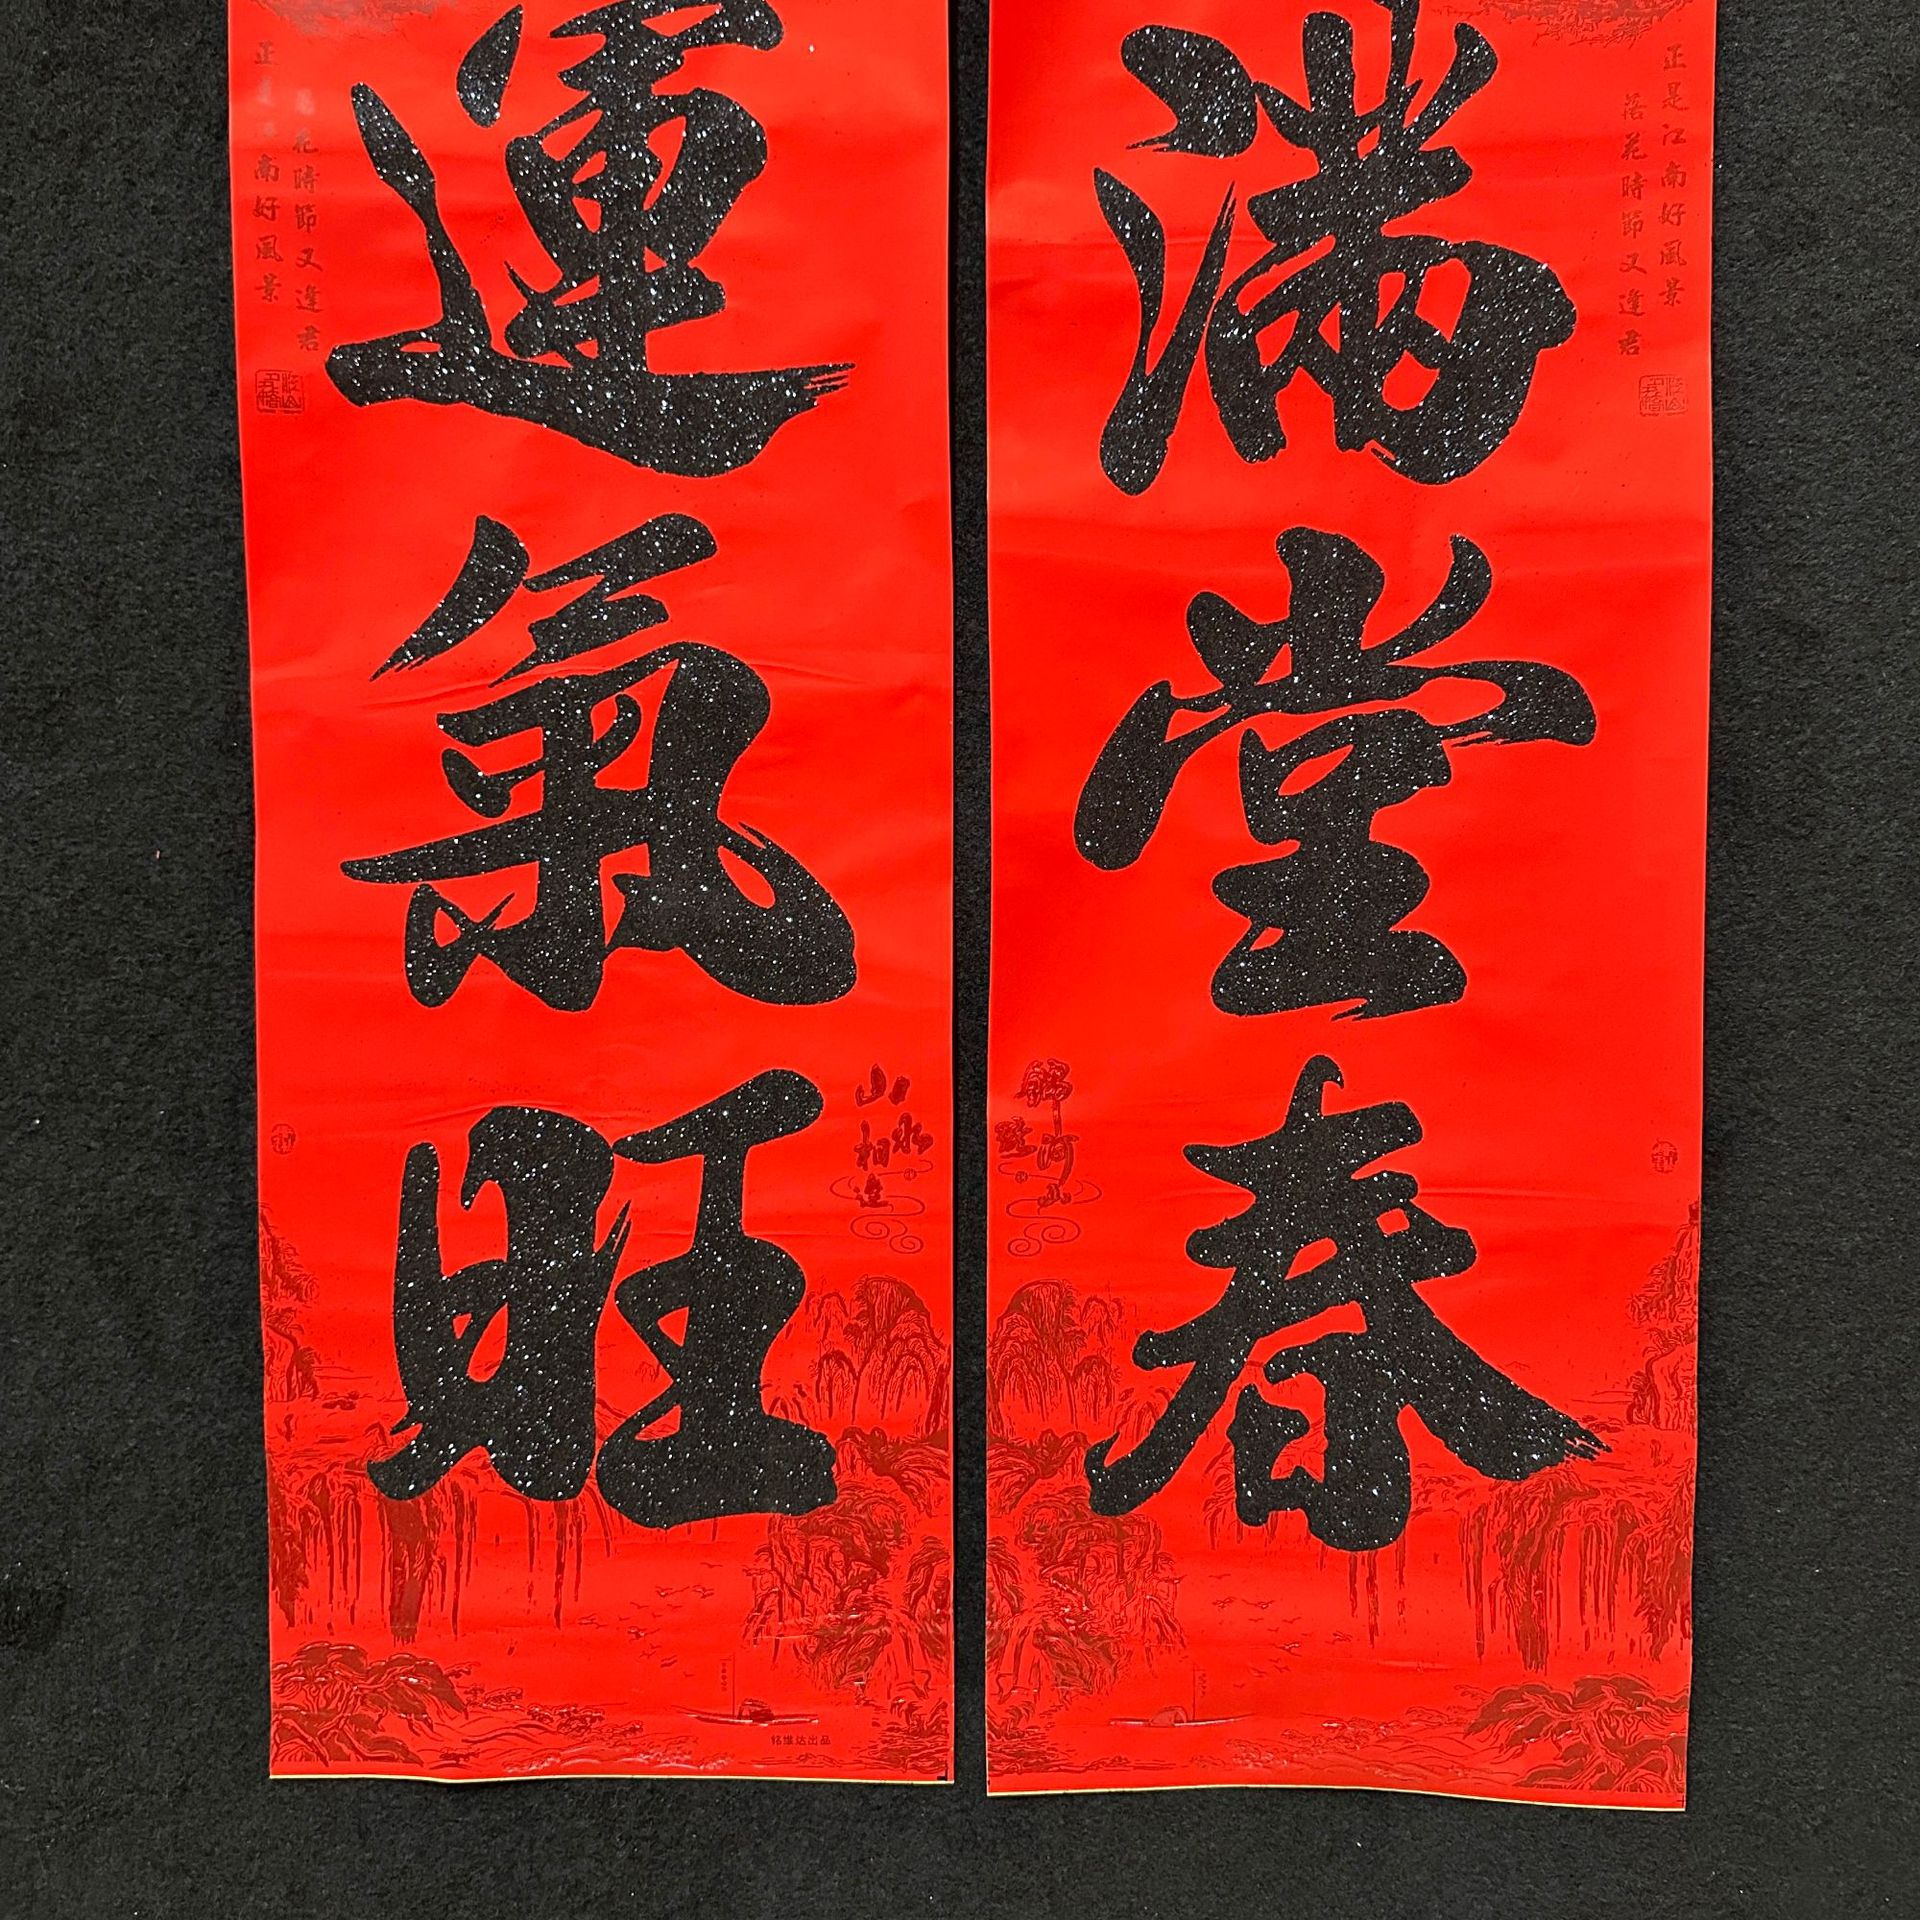 滿堂春
運氣旺
正是江南好風景
落花時節又逢君
南好風景
花時節又逢君
錦繡河山
山水相逢
铭维达出品